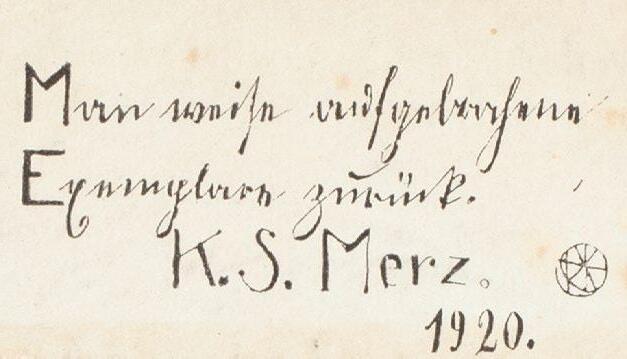 Man weise aufgebrochene
Exemplare zurück.
K. S. Merz.
1920.